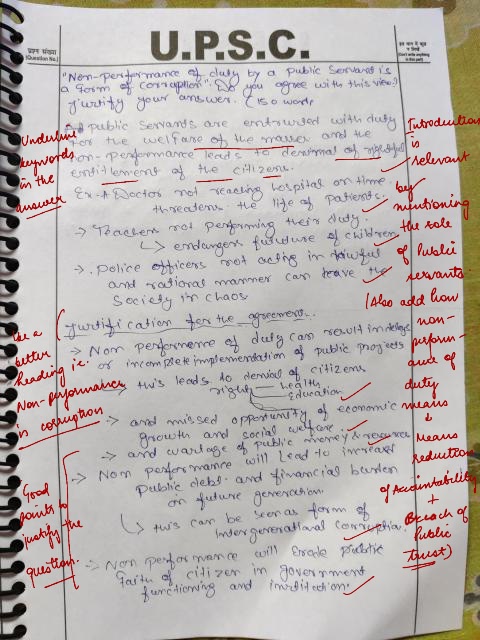 प्रश्न संख्या
(Question No.)
U.P.S.C.
इस भाग में कुछ
न लिखें
(Don't write anything
in this part)
"Non-performance of duty by a public servant is
a form of corruption". Do you agree with this view?
Justify your answer. (150 words
public servants are entrusted with duty
for the welfare of the masses and the
non-performance leads to denial of rightful
entitlement of the citizens.
Ex- A Doctor not reaching hospital on time
threatens the life of patients.
→ Teachers not performing their duty.
↳ endangers future of children
→ Police officers not acting in lawful
and rational manner can leave the
Society in chaos
Justification for the agreement.
→ Non performance of duty can result in delays
or incomplete implementation of public projects
→ this leads to denial of citizens
rights
Health
Education
→ and missed opportunity of economic
growth and social welfare.
→ and wastage of public money & resources
→ Non performance will lead to increase
public debt and financial burden
on future generation.
↳ this can be seen as form of
Intergenerational corruption.
→ Non performance will erode public
faith of citizen in government
functioning and institution.
Underline
keywords
in the
answer
Use a
better
heading i.e.
Non-performance
is corruption
Good
points to
justify the
question.
Introduction
is
relevant
by
mentioning
the role
of Public
servants.
(Also add how
non-
perform-
ance of
duty
means
↓
Means
reduction
of Accountability
+
Breach of
Public
trust)